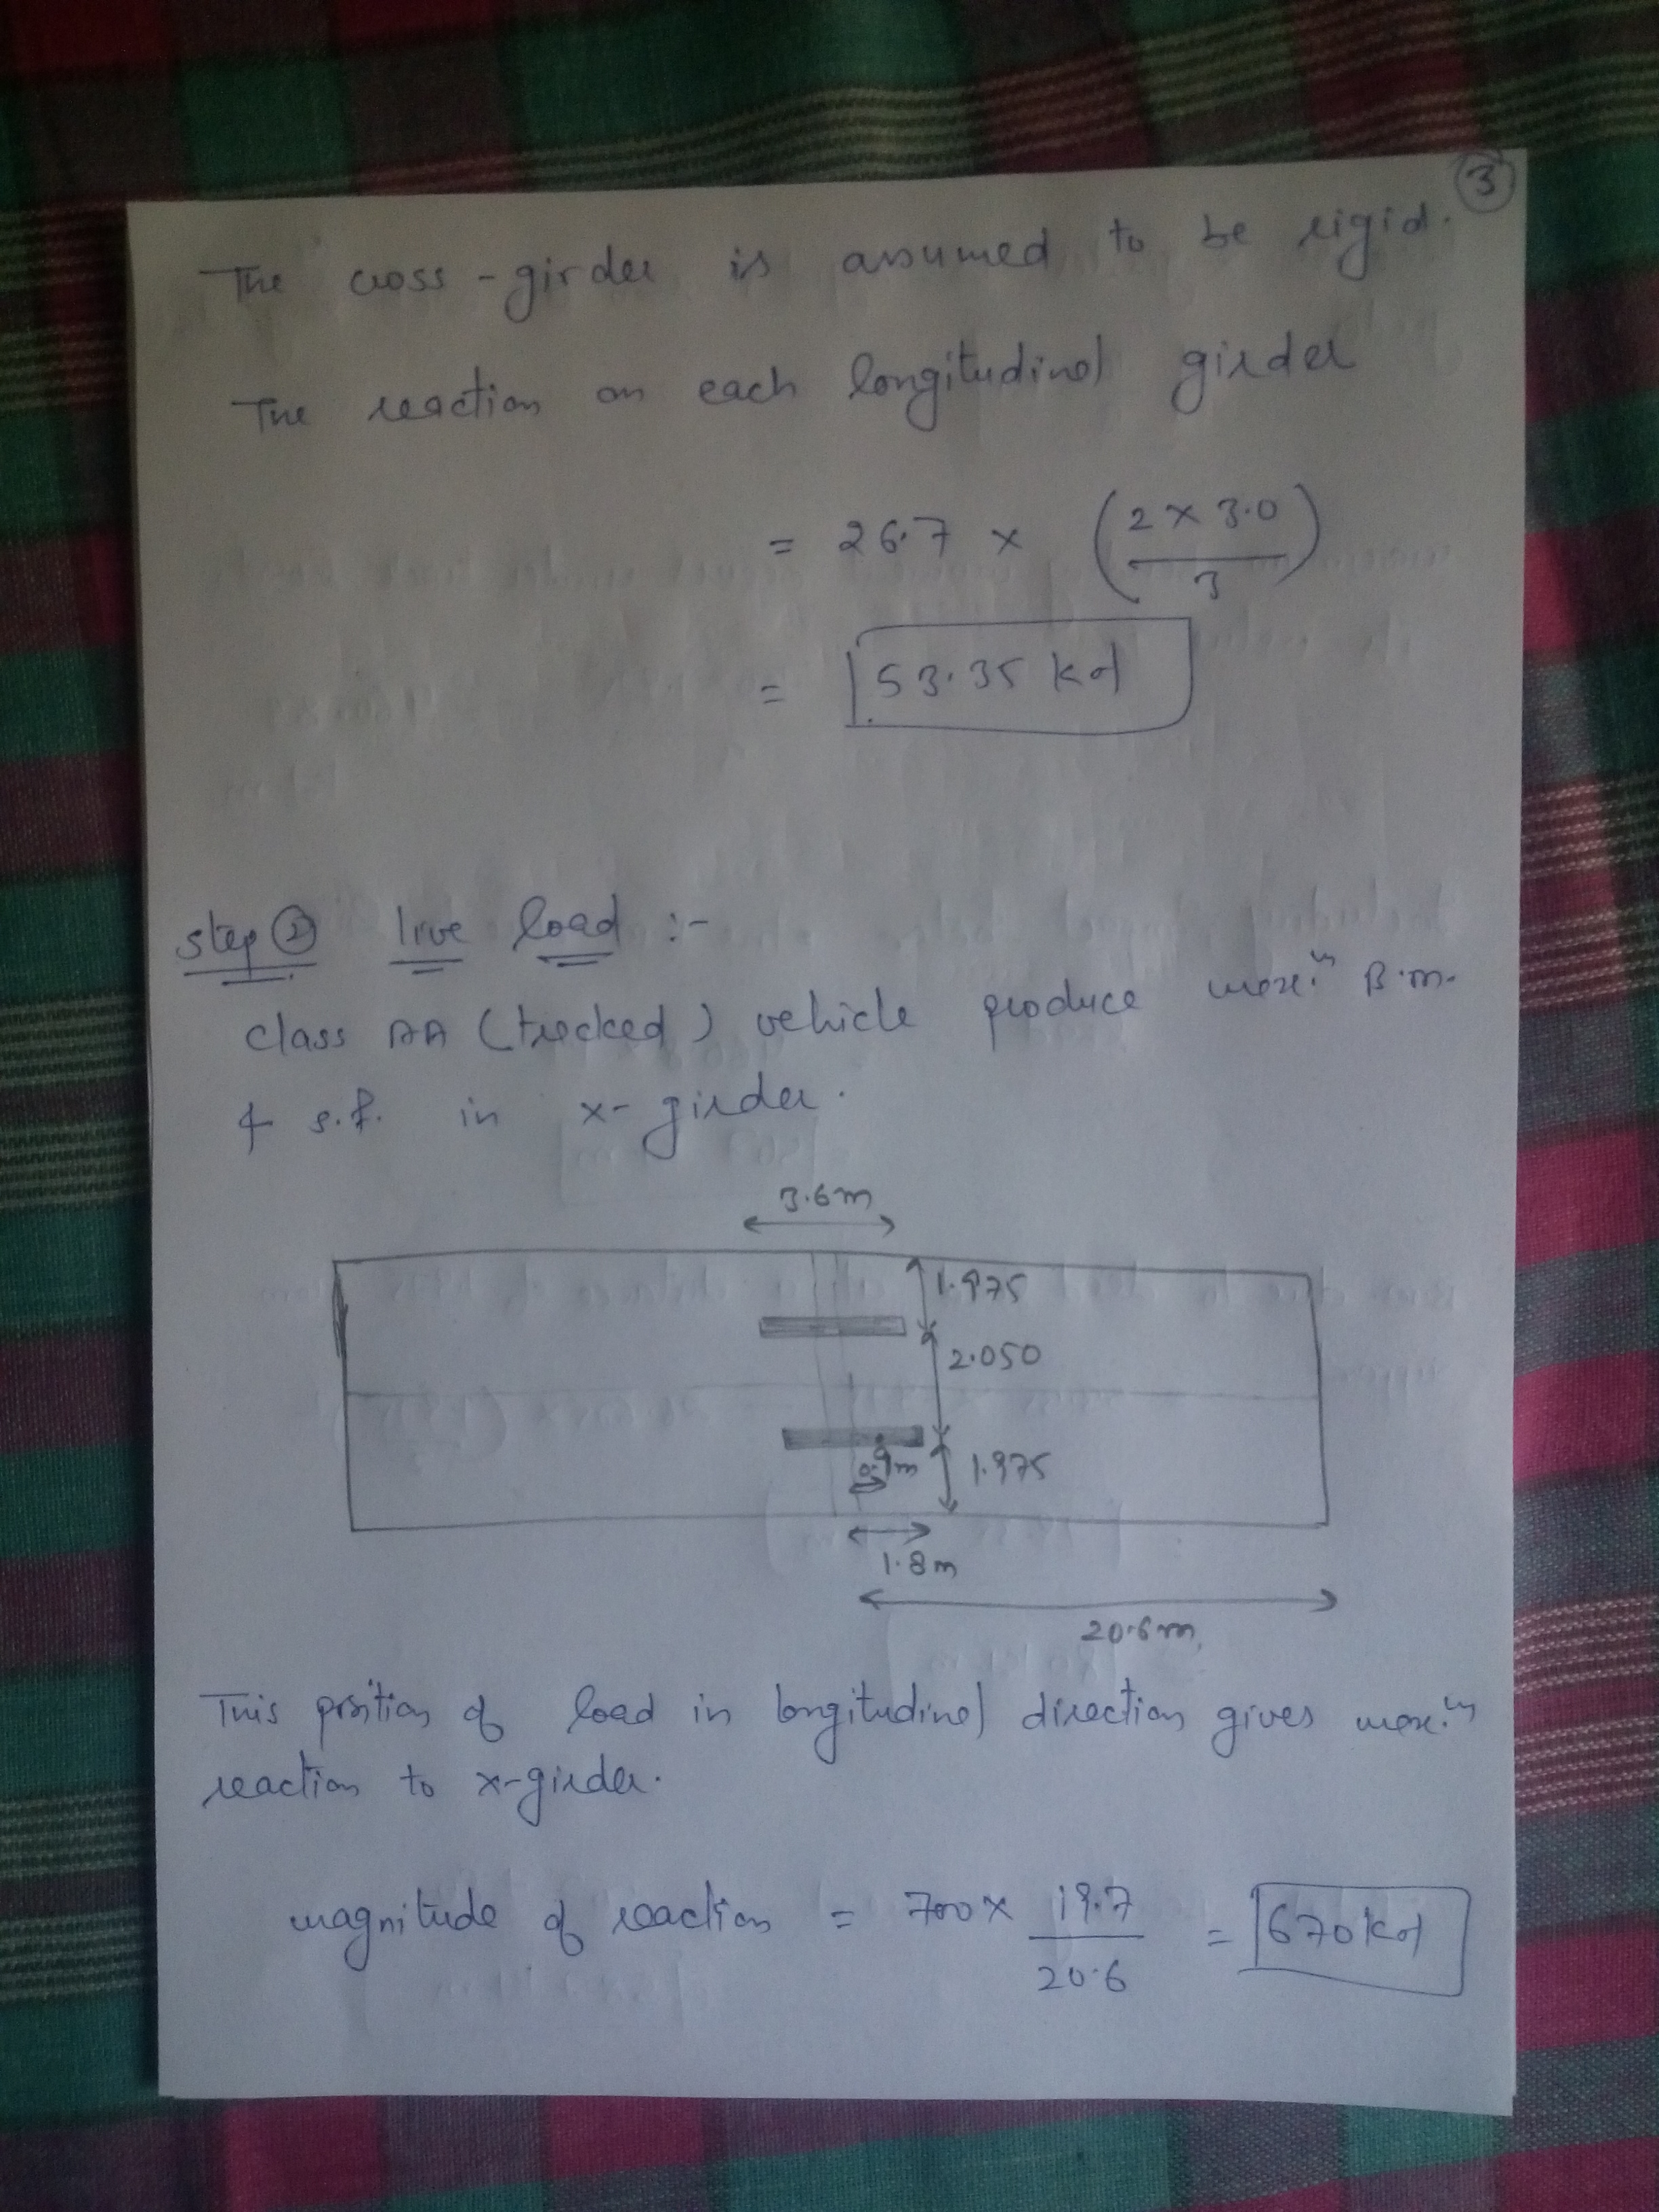 3
The cross-girder is assumed to be rigid.
The reaction on each longitudinal girder
= 26.7 × (2 × 3.0 / 3)
= 53.35 kN
step 2 live load :-
class AA (tracked) vehicle produce max.m B.m.
& s.f. in x-girder.
3.6m
1.975
2.050
0.9m
1.975
1.8m
20.6m
This position of load in longitudinal direction gives max.m
reaction to x-girder.
magnitude of reaction = 700 × 19.7 / 20.6 = 670 kN